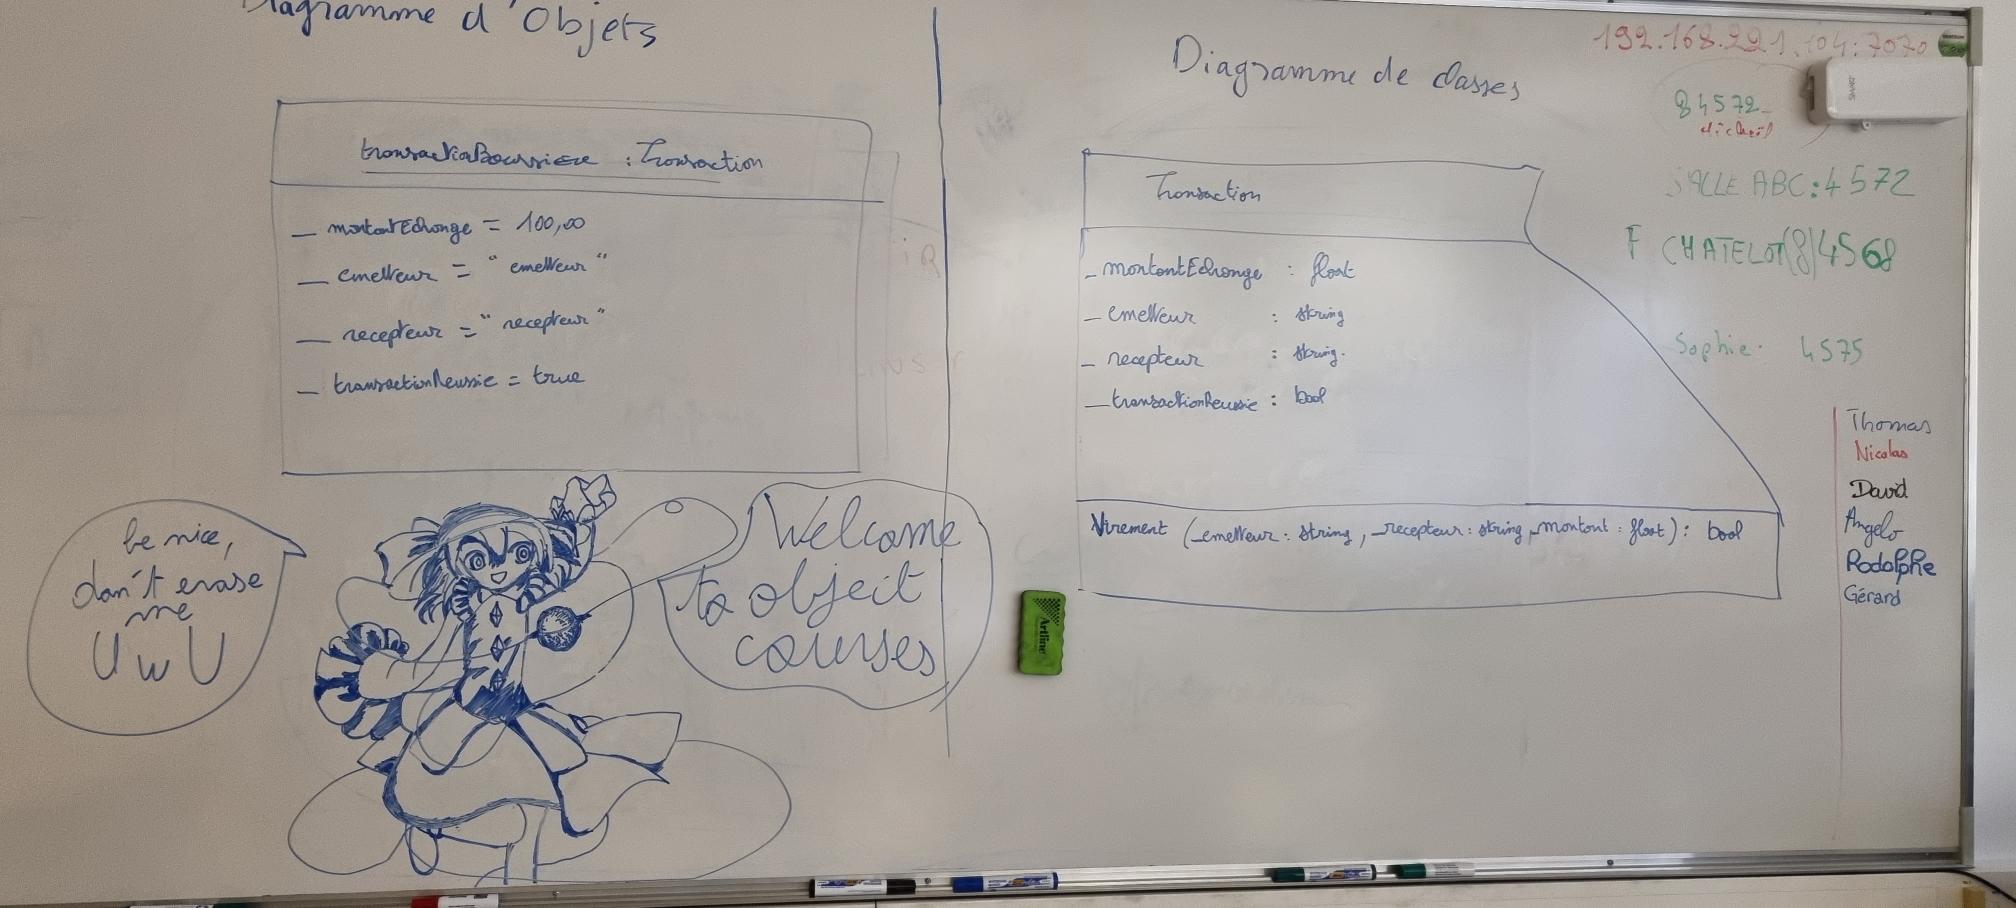 Diagramme d'Objets
transactionBoursiere : Transaction
_ montantEchange = 100,00
_ emetteur = "emetteur"
_ recepteur = "recepteur"
_ transactionReussie = true
be nice,
don't erase
me
UwU
Welcome
to object
courses
Diagramme de classes
Transaction
_ montantEchange : float
_ emetteur : string
_ recepteur : string.
_ transactionReussie : bool
Virement (_emetteur : string, _recepteur : string, _montant : float) : bool
192.168.221.104:7070
84572
SALLE ABC:4572
F CHATELOT(8)4568
Sophie. 4575
Thomas
Nicolas
David
Angelo
Rodolphe
Gérard
SMART
Artline